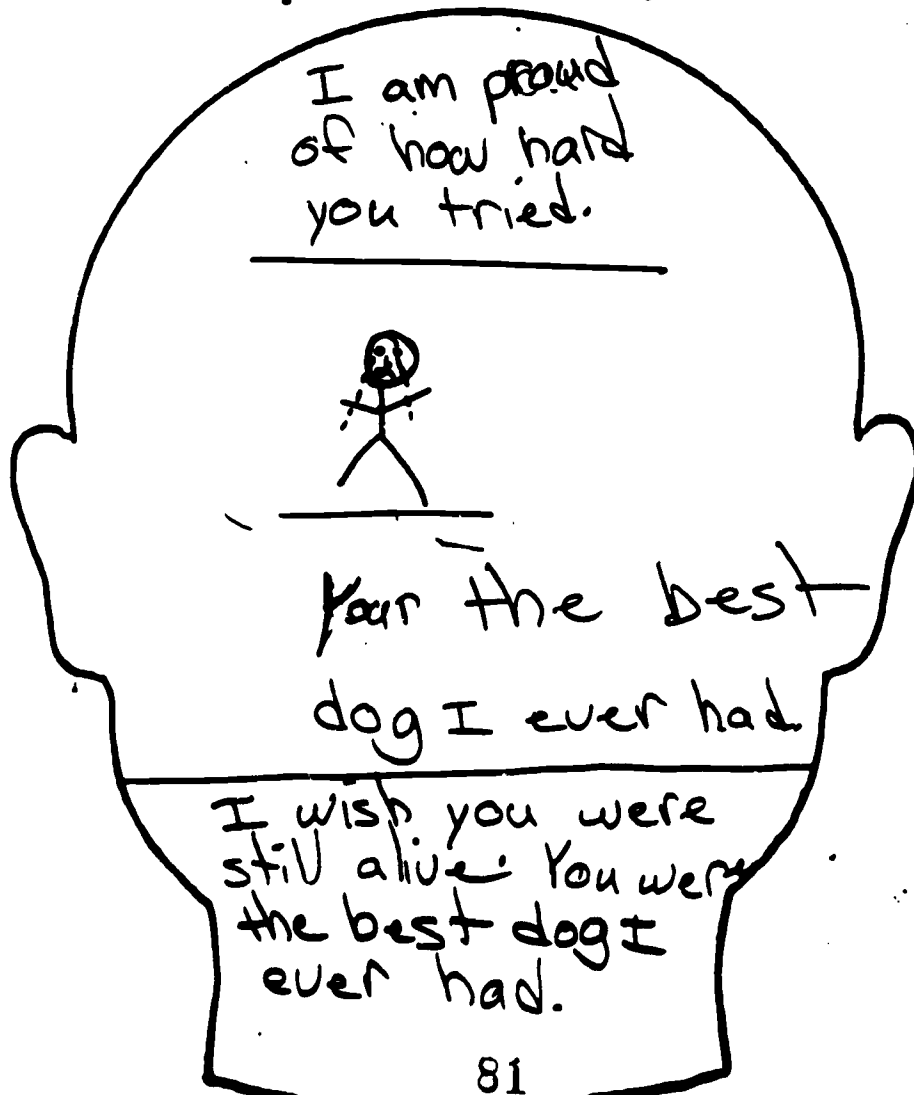 I am proud
of how hard
you tried.
Your the best
dog I ever had
I wish you were
still alive. You were
the best dog I
ever had.
81